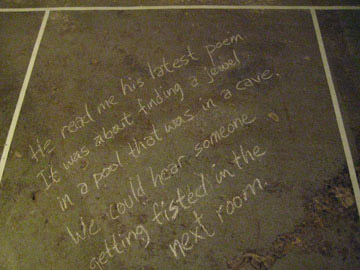 He read me his latest poem
It was about finding a jewel
in a pool that was in a cave.
We could hear someone
getting fisted in the
next room.